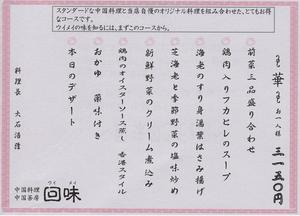 スタンダードな中国料理と当店自慢のオリジナル料理を組み合わせた、とてもお得
なコースです。
ウイメイの味を知るには、まずこのコースから。
華 お一人様 三一五〇円
前菜三品盛り合わせ
鶏肉入りフカヒレのスープ
海老のすり身湯葉はさみ揚げ
芝海老と季節野菜の塩味炒め
新鮮野菜のクリーム煮込み
鶏肉のオイスターソース蒸し 香港スタイル
おかゆ 薬味付き
本日のデザート
料理長 大石浩隆
中国料理
中国茶房
回味
ウイ メイ